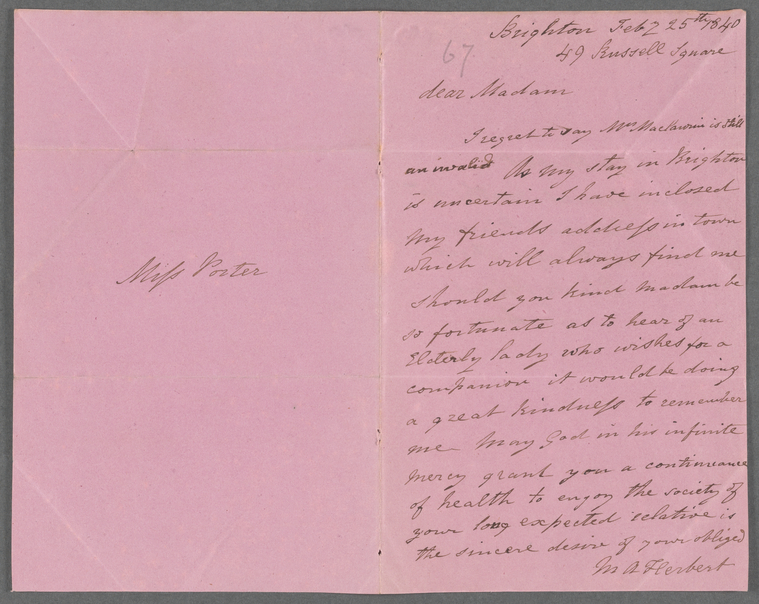 Miss Porter
67
Brighton Feby 25th 1840
49 Russell Square
dear Madam
I regret to say Mrs is still
an invalid As my stay in Brighton
is uncertain I have inclosed
my friends address in town
which will always find me
should you kind madam be
so fortunate as to hear of an
Elderly lady who wishes for a
companion it would be doing
a great kindness to remember
me May God in his infinite
mercy grant you a continuance
of health to enjoy the society of
your long expected relative is
the sincere desire of your obliged
M A Herbert